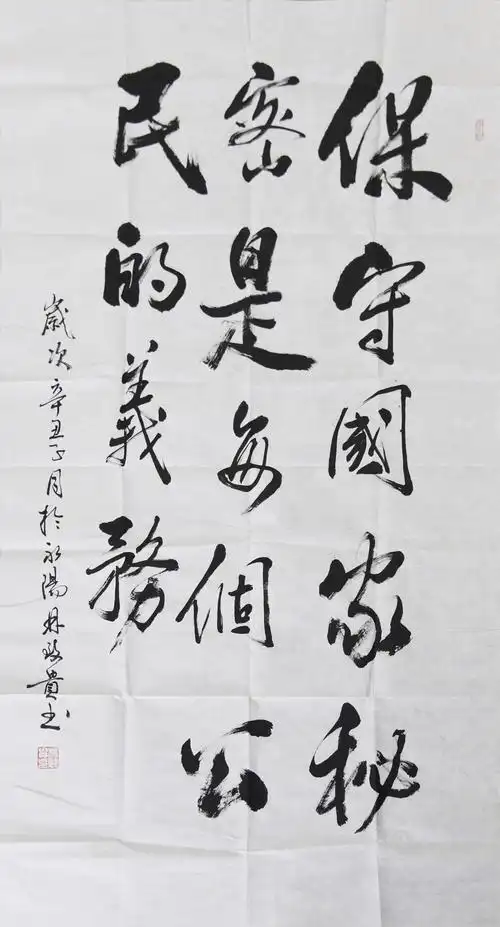 保守國家秘
密是每個公
民的義務
歲次辛丑子月於永陽林玫貴书